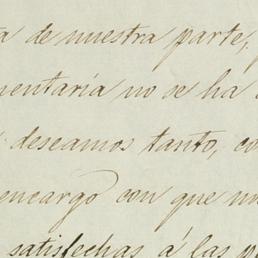 de nuestra parte,
mentaría no se ha
deseamos tanto, co
encargo con que un
satisfechas á las p